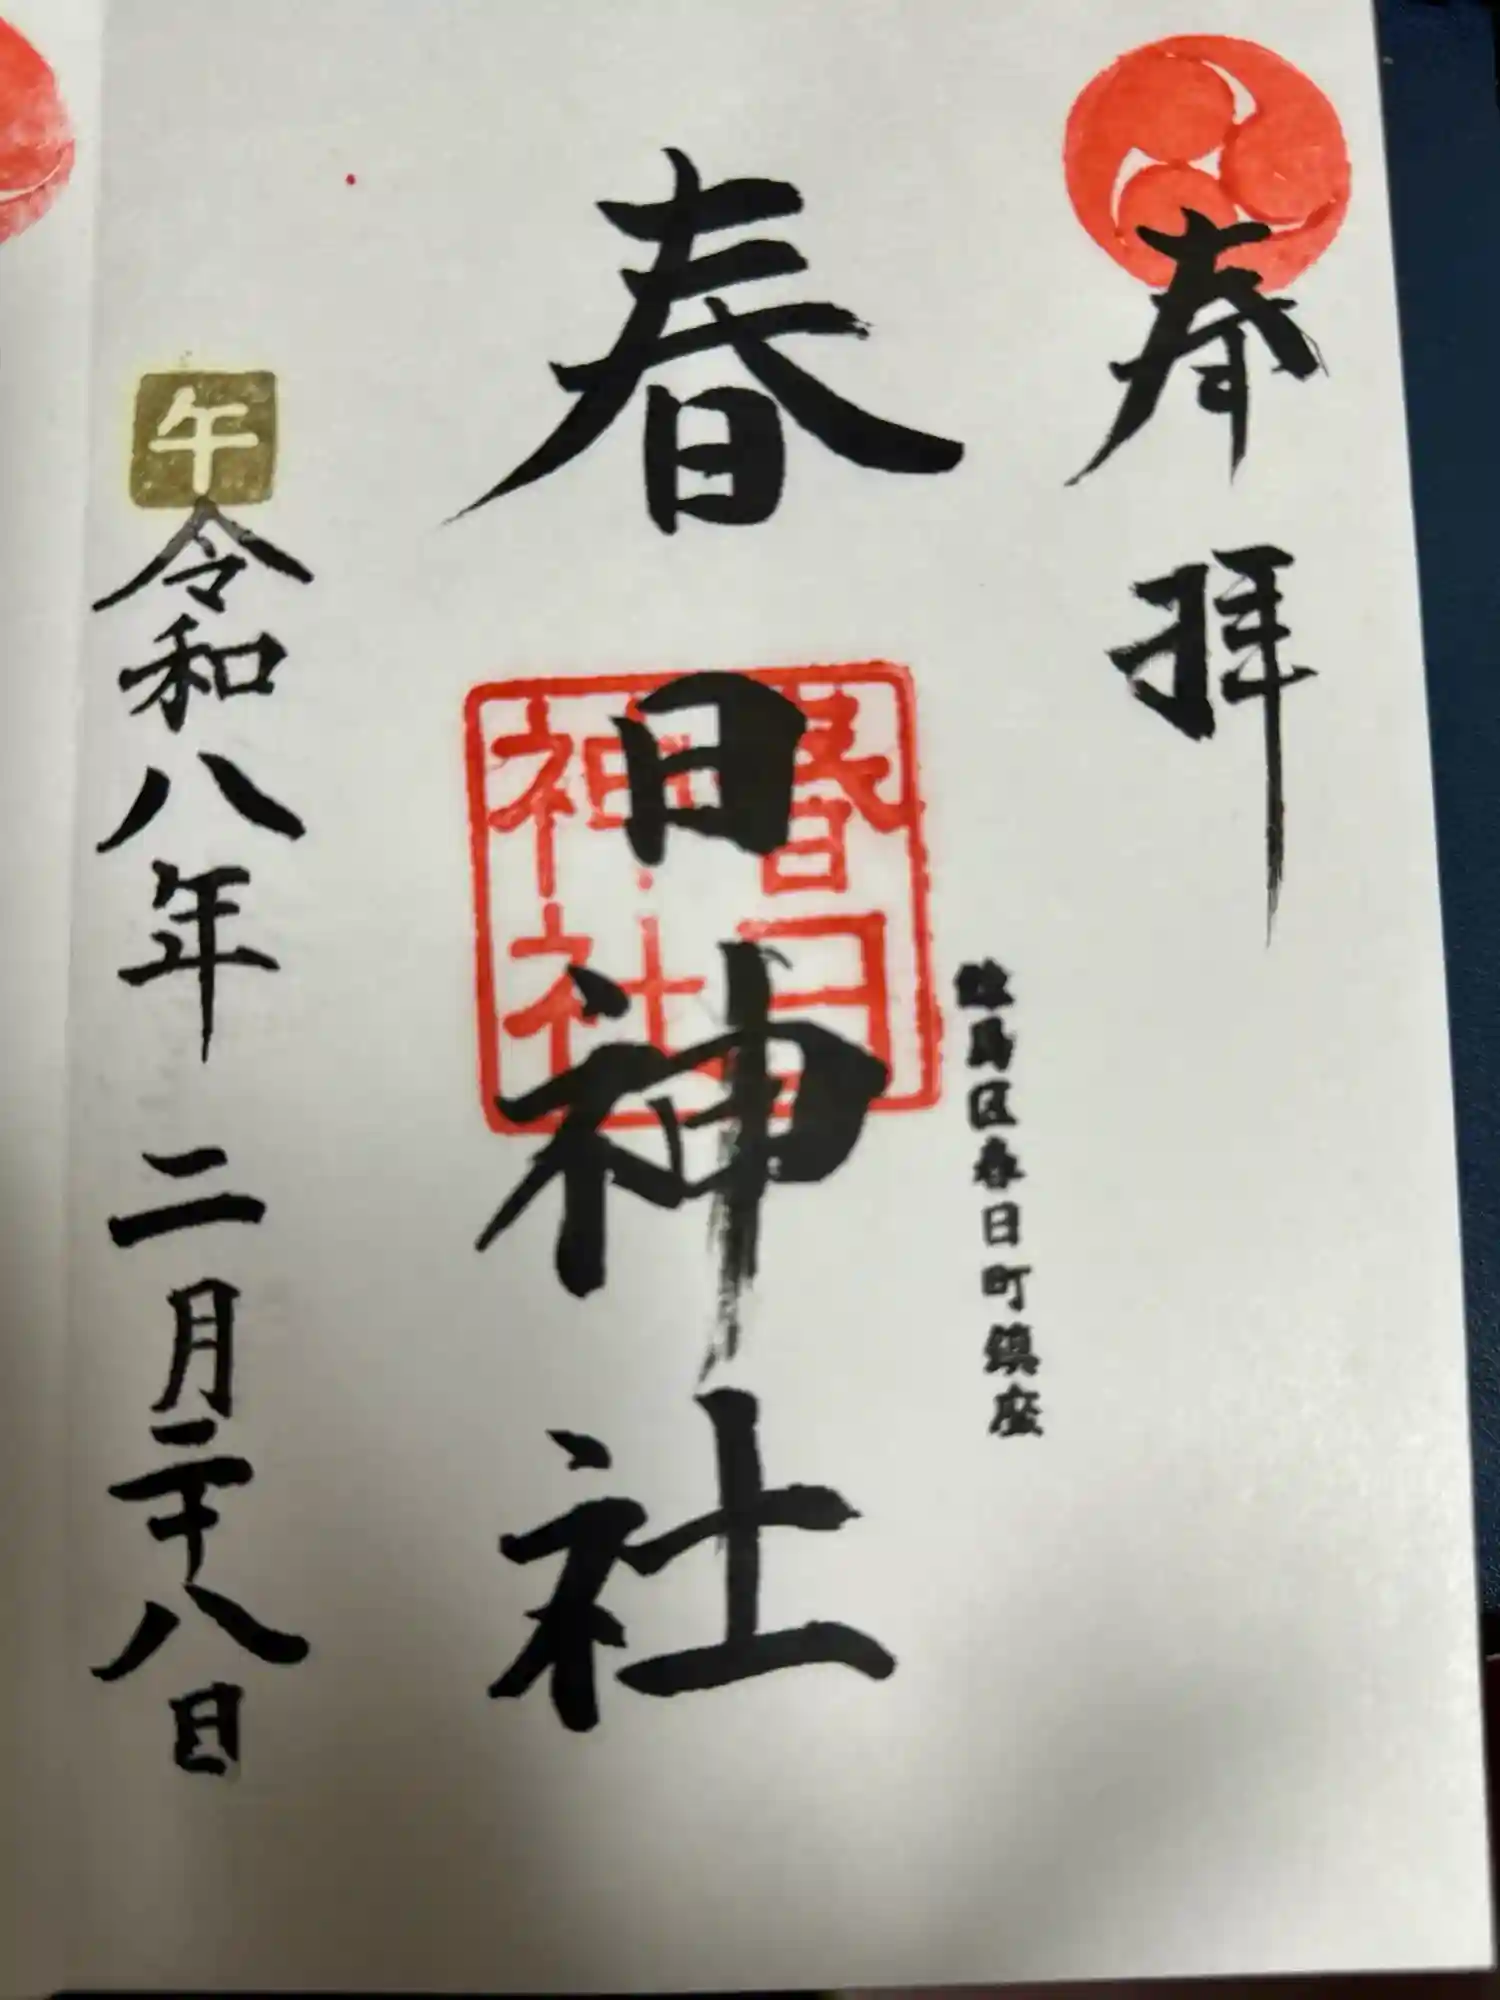 奉拝
練馬区春日町鎮座
春日神社
春日
神社
午
令和八年 二月二十八日